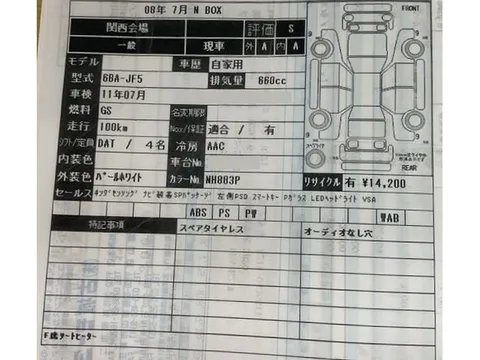 08年 7月 N BOX
関西会場 評価 S
一般 現車 外 A 内 A
モデル 車歴 自家用
型式 6BA-JF5 排気量 660cc
車検 11年07月
燃料 GS 名変期限
走行 100km Nox/保証 適合 / 有
シフト/定員 DAT / 4名 冷房 AAC
内装色 車台No
外装色 パールホワイト カラーNo NH883P
セールス ホンダセンシング ナビ装着SPパッケージ 左側PSD スマートキー Pガラス LEDヘッドライト VSA
ABS PS PW WAB
特記事項 スペアタイヤレス オーディオなし穴
F席シートヒーター
FRONT
スペアタイヤ
REAR
リサイクル 有 ¥14,200